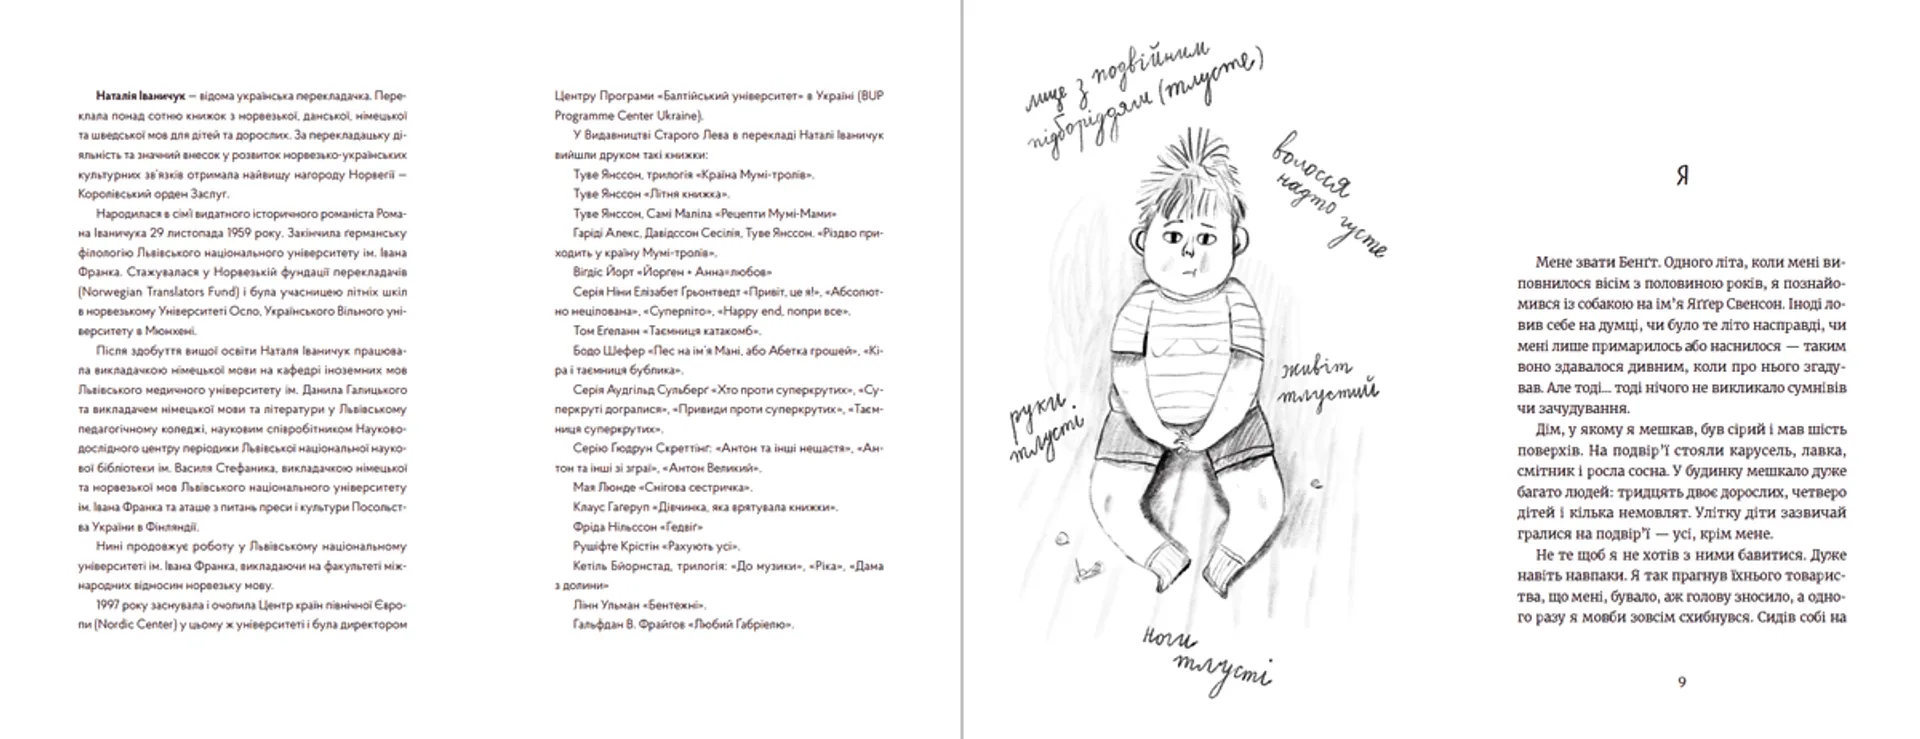 Наталія Іваничук – відома українська перекладачка. Пере-
клала понад сотню книжок з норвезької, данської, німецької
та шведської мов для дітей та дорослих. За перекладацьку ді-
яльність та значний внесок у розвиток норвезько-українських
культурних зв'язків отримала найвищу нагороду Норвегії –
Королівський орден Заслуг.
Народилася в сім'ї видатного історичного романіста Рома-
на Іваничука 29 листопада 1959 року. Закінчила ґерманську
філологію Львівського національного університету ім. Івана
Франка. Стажувалася у Норвезькій фундації перекладачів
(Norwegian Translators Fund) і була учасницею літніх шкіл
в норвезькому Університеті Осло, Українського Вільного уні-
верситету в Мюнхені.
Після здобуття вищої освіти Наталя Іваничук працюва-
ла викладачкою німецької мови на кафедрі іноземних мов
Львівського медичного університету ім. Данила Галицького
та викладачем німецької мови та літератури у Львівському
педагогічному коледжі, науковим співробітником Науково-
дослідного центру періодики Львівської національної науко-
вої бібліотеки ім. Василя Стефаника, викладачкою німецької
та норвезької мов Львівського національного університету
ім. Івана Франка та аташе з питань преси і культури Посольст-
ва України в Фінляндії.
Нині продовжує роботу у Львівському національному
університеті ім. Івана Франка, викладаючи на факультеті між-
народних відносин норвезьку мову.
1997 року заснувала і очолила Центр країн північної Євро-
пи (Nordic Center) у цьому ж університеті і була директором
Центру Програми «Балтійський університет» в Україні (BUP
Programme Center Ukraine).
У Видавництві Старого Лева в перекладі Наталі Іваничук
вийшли друком такі книжки:
Туве Янссон, трилогія «Країна Мумі-тролів».
Туве Янссон «Літня книжка».
Туве Янссон, Самі Маліла «Рецепти Мумі-Мами»
Гаріді Алекс, Давідссон Сесілія, Туве Янссон. «Різдво при-
ходить у країну Мумі-тролів».
Віґдіс Йорт «Йорґен + Анна=любов»
Серія Ніни Елізабет Ґрьонтведт «Привіт, це я!», «Абсолют-
но нецілована», «Суперліто», «Happy end, попри все».
Том Еґеланн «Таємниця катакомб».
Бодо Шефер «Пес на ім'я Мані, або Абетка грошей», «Кі-
ра і таємниця бублика».
Серія Аудгільд Сульберґ «Хто проти суперкрутих», «Су-
перкруті догралися», «Привиди проти суперкрутих», «Таєм-
ниця суперкрутих».
Серію Ґюдрун Скреттінґ: «Антон та інші нещастя», «Ан-
тон та інші зі зграї», «Антон Великий».
Мая Люнде «Снігова сестричка».
Клаус Гаґеруп «Дівчинка, яка врятувала книжки».
Фріда Нільссон «Гедвіґ»
Рушіфте Крістін «Рахують усі».
Кетіль Бйорнстад, трилогія: «До музики», «Ріка», «Дама
з долини»
Лінн Ульман «Бентежні».
Гальфдан В. Фрайгов «Любий Габріелю».
лице з подвійним
підборіддям (тлусте)
волосся
надто густе
живіт
тлустий
руки
тлусті
ноги
тлусті
Я
Мене звати Бенґт. Одного літа, коли мені ви-
повнилося вісім з половиною років, я познайо-
мився із собакою на ім'я Яґґер Свенсон. Іноді ло-
вив себе на думці, чи було те літо насправді, чи
мені лише примарилось або наснилося — таким
воно здавалося дивним, коли про нього згаду-
вав. Але тоді... тоді нічого не викликало сумнівів
чи зачудування.
Дім, у якому я мешкав, був сірий і мав шість
поверхів. На подвір'ї стояли карусель, лавка,
смітник і росла сосна. У будинку мешкало дуже
багато людей: тридцять двоє дорослих, четверо
дітей і кілька немовлят. Улітку діти зазвичай
гралися на подвір'ї — усі, крім мене.
Не те щоб я не хотів з ними бавитися. Дуже
навіть навпаки. Я так прагнув їхнього товарис-
тва, що мені, бувало, аж голову зносило, а одно-
го разу я мовби зовсім схибнувся. Сидів собі на
9